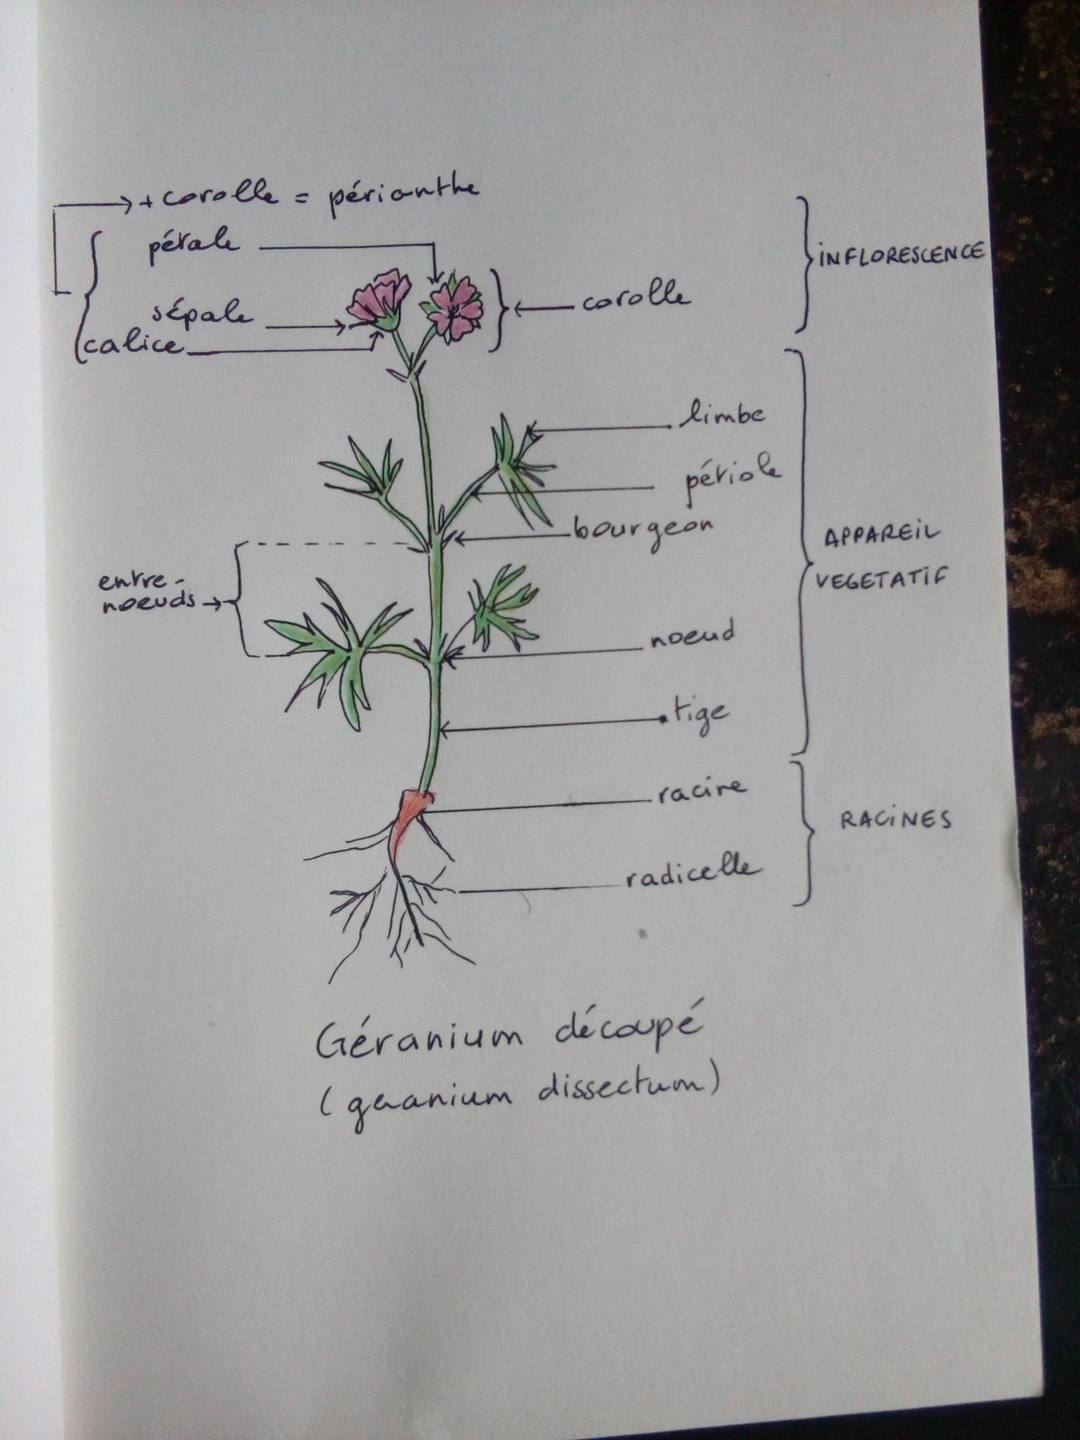 + corolle = périanthe
pétale
INFLORESCENCE
sépale
corolle
calice
limbe
pétiole
bourgeon
APPAREIL
VEGETATIF
entre-
noeuds
noeud
tige
racine
RACINES
radicelle
Géranium découpé
(geranium dissectum)